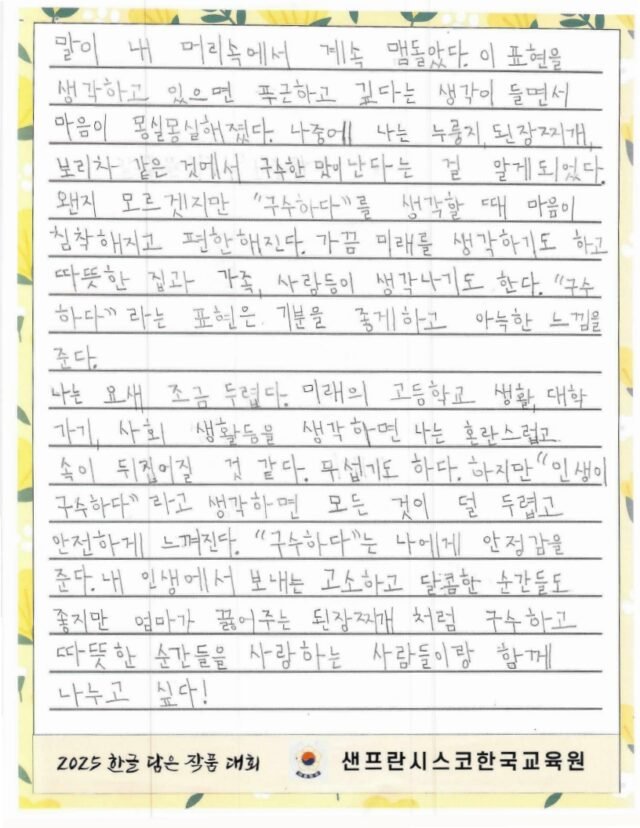 말이 내 머리속에서 계속 맴돌았다. 이 표현을
생각하고 있으면 푸근하고 깊다는 생각이 들면서
마음이 몽실몽실해졌다. 나중에 나는 누룽지, 된장찌개,
보리차 같은 것에서 구수한 맛이 난다는 걸 알게 되었다.
왠지 모르겠지만 "구수하다"를 생각할 때 마음이
침착해지고 편한해진다. 가끔 미래를 생각하기도 하고
따뜻한 집과 가족, 사람등이 생각나기도 한다. "구수
하다" 라는 표현은 기분을 좋게하고 아늑한 느낌을
준다.
나는 요새 조금 두렵다. 미래의 고등학교 생활, 대학
가기, 사회 생활등을 생각하면 나는 혼란스럽고
속이 뒤집어질 것 같다. 무섭기도 하다. 하지만 "인생이
구수하다" 라고 생각하면 모든 것이 덜 두렵고
안전하게 느껴진다. "구수하다"는 나에게 안정감을
준다. 내 인생에서 보내는 고소하고 달콤한 순간들도
좋지만 엄마가 끓어주는 된장찌개 처럼 구수하고
따뜻한 순간들을 사랑하는 사람들이랑 함께
나누고 싶다!
2025 한글 담은 작품 대회 샌프란시스코한국교육원